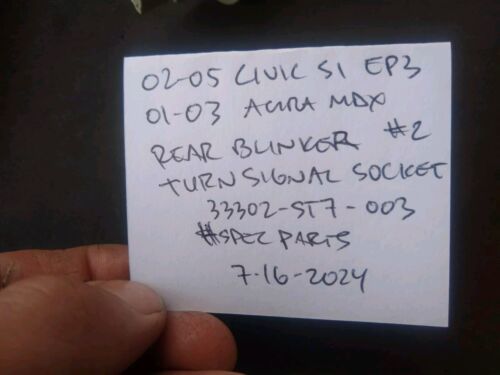 02-05 CIVIC SI EP3
01-03 ACURA MDX
REAR BLINKER #2
TURN SIGNAL SOCKET
33302-ST7-003
#SPEC PARTS
7-16-2024